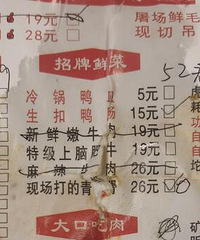 19元
屠场鲜毛
28元
现切吊
招牌鲜菜
52元
冷锅鸭血
5元
生扣鸭肠
15元
新鲜嫩牛肉
19元
特级上脑肥牛
26元
麻辣牛肉
19元
现场打的青
26元
大口吃肉